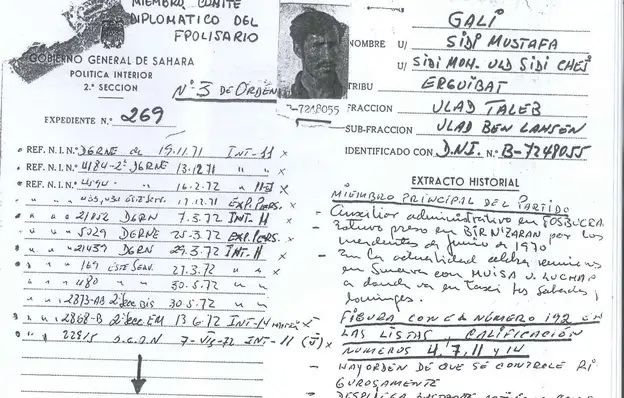 MIEMBRO COMITE
DIPLOMATICO DEL
FPOLISARIO
GOBIERNO GENERAL DE SAHARA
POLITICA INTERIOR
2.ª SECCION
Nº 3 DE ORDEN
EXPEDIENTE N.º 269
REF. N.I. N.º DGRNE de 15.11.71 INT-11 x
REF. N.I. N.º 4184-2ª DGRNE 13.12.71 " " x
REF. N.I. N.º 16.2.72 " x
ESTE SERV. 17.12.71 EXP. PERS.
" " " 21052 DGRN 7.3.72 INT. 11 x
" " " 5029 DGRNE 25-3.72 EXP. PERS. x
" " " 21439 DGRN 29.3.72 INT. 11 x
" " " 169 ESTE SERV. 27.3.72 " " x
" " " 480 " 30.5.72 " "
" " " 2873-AB 2ª Sec DIS 30.5.72
" " " 2868-B 2ª Sec EM 13.6.72 INT-14 x
" " " 7-VII-72 INT-11 x
B-7248055
GALI
NOMBRE U/ SIDI MUSTAFA
U/ SIDI MOH. ULD SIDI CHEJ
TRIBU ERGUIBAT
FRACCION ULAD TALEB
SUB-FRACCION ULAD BEN LAHSEN
IDENTIFICADO CON D.N.I. N.º B-7248055
EXTRACTO HISTORIAL
MIEMBRO PRINCIPAL DEL PARTIDO
- Auxiliar administrativo en FOSBUCRA
- Estuvo preso en BIRNIZARAN por los
incidentes de junio de 1970
- En la actualidad celebra reuniones
en Smara con MUISA U. LUCHAP
a donde va en taxi los sabados y
domingos.
FIGURA CON EL NUMERO 192 EN
LAS LISTAS, CALIFICACIÓN
NUMEROS 4, 7, 11 y 14
- HAY ORDEN DE QUE SE CONTROLE RI
GUROSAMENTE